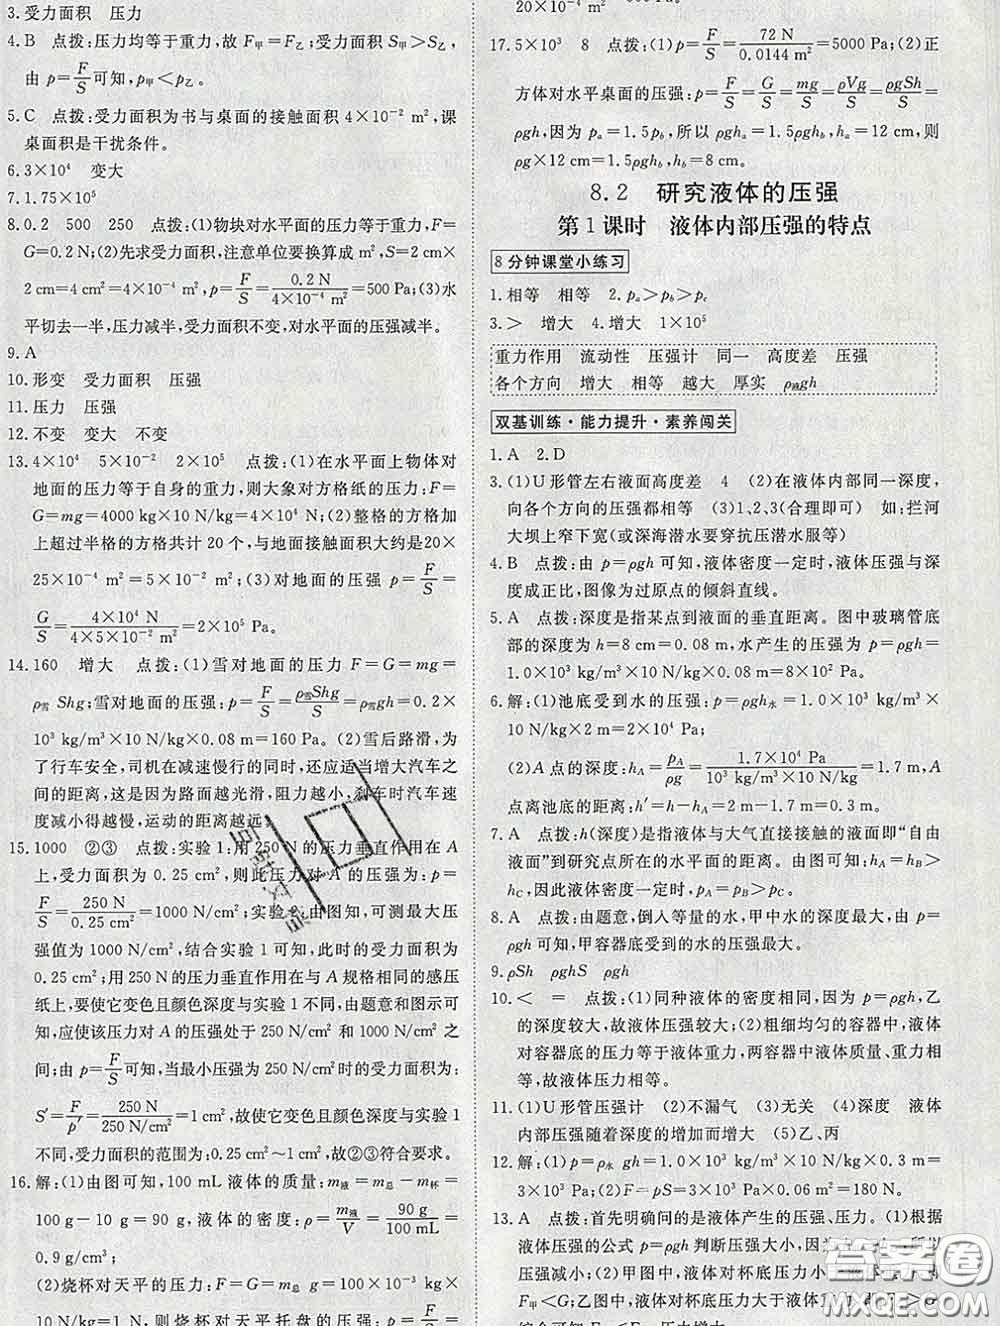 3.受力面积　压力
4.B　点拨:压力均等于重力,故F甲=F乙;受力面积S甲>S乙,
由p=F/S可知,p甲<p乙.
5.C　点拨:受力面积为书与桌面的接触面积4×10⁻² m²,课
桌面积是干扰条件.
6.3×10⁴　变大
7.1.75×10⁵
8.0.2　500　250　点拨:(1)物块对水平面的压力等于重力,F=
G=0.2 N;(2)先求受力面积,注意单位要换算成m²,S=2 cm×
2 cm=4 cm²=4×10⁻⁴ m²,p=F/S=0.2 N/4×10⁻⁴ m²=500 Pa;(3)水
平切去一半,压力减半,受力面积不变,对水平面的压强减半.
9.A
10.形变　受力面积　压强
11.压力　压强
12.不变　变大　不变
13.4×10⁴　5×10⁻²　2×10⁵　点拨:(1)在水平面上物体对
地面的压力等于自身的重力,则大象对方格纸的压力:F=
G=mg=4000 kg×10 N/kg=4×10⁴ N;(2)整格的方格加
上超过半格的方格共计20个,与地面接触面积大约是20×
25×10⁻⁴ m²=5×10⁻² m²;(3)对地面的压强p=F/S=
G/S=4×10⁴ N/4×5×10⁻² m²=2×10⁵ Pa.
14.160　增大　点拨:(1)雪对地面的压力F=G=mg=
ρ雪Shg;雪对地面的压强:p=F/S=ρ雪Shg/S=ρ雪gh=0.2×
10³ kg/m³×10 N/kg×0.08 m=160 Pa.(2)雪后路滑,为
了行车安全,司机在减速慢行的同时,还应适当增大汽车之
间的距离,这是因为路面越光滑,阻力越小,刹车时汽车速
度减小得越慢,运动的距离越远.
15.1000　②③　点拨:实验1:用250 N的压力垂直作用在A
上,受力面积为0.25 cm²,则此压力对A的压强为:p=
F/S=250 N/0.25 cm²=1000 N/cm²;实验2:由图知,可测最大压
强值为1000 N/cm²,结合实验1可知,此时的受力面积为
0.25 cm²;用250 N的压力垂直作用在与A规格相同的感压
纸上,要使它变色且颜色深度与实验1不同,由题意和图示可
知,应使该压力对A的压强处于250 N/cm²和1000 N/cm²之
间;由p=F/S可知,当最小压强为250 N/cm²时的受力面积为:
S′=F/p′=250 N/250 N/cm²=1 cm²,故使它变色且颜色深度与实验1
不同,受力面积的范围为:0.25 cm²～1 cm²;故②③符合要求.
16.解:(1)由图可知,100 mL液体的质量:m液=m总-m杯=
100 g-10 g=90 g,液体的密度:ρ=m液/V=90 g/100 mL=
0.9 g/cm³;
(2)烧杯对天平的压力:F=G=m总g=100×10⁻³ kg×
10 N/kg=1 N,则烧杯对天平托盘的压强:p=F/S=
17.5×10³　8　点拨:(1)p=F/S=72 N/0.0144 m²=5000 Pa;(2)正
方体对水平桌面的压强:p=F/S=G/S=mg/S=ρVg/S=ρgSh/S=
ρgh,因为pa=1.5pb,所以ρgha=1.5ρghb,ha=12 cm,则
ρg×12 cm=1.5ρghb,hb=8 cm.
8.2　研究液体的压强
第1课时　液体内部压强的特点
8分钟课堂小练习
1.相等　相等　2.pa>pb>pc
3.>　增大　4.增大　1×10⁵
重力作用　流动性　压强计　同一　高度差　压强
各个方向　增大　相等　越大　厚实　ρ液gh
双基训练·能力提升·素养闯关
1.A　2.D
3.(1)U形管左右液面高度差　4　(2)在液体内部同一深度,
向各个方向的压强都相等　(3)1、2、3(合理即可)　如:拦河
大坝上窄下宽(或深海潜水要穿抗压潜水服等)
4.B　点拨:由p=ρgh可知,液体密度一定时,液体压强与深
度成正比,图像为过原点的倾斜直线.
5.A　点拨:深度是指某点到液面的垂直距离.图中玻璃管底
部的深度为h=8 cm=0.08 m,水产生的压强为p=ρgh=
1.0×10³ kg/m³×10 N/kg×0.08 m=8×10² Pa.
6.解:(1)池底受到水的压强:p=ρgh水=1.0×10³ kg/m³×
10 N/kg×2 m=2×10⁴ Pa;
(2)A点的深度:hA=pA/ρg=1.7×10⁴ Pa/10³ kg/m³×10 N/kg=1.7 m,A
点离池底的距离:h′=h-hA=2 m-1.7 m=0.3 m.
7.A　点拨:h(深度)是指液体与大气直接接触的液面即“自由
液面”到研究点所在的水平面的距离.由图可知:hA=hB>
hC,因此液体密度一定时,pA=pB>pC.
8.A　点拨:由题意,倒入等量的水,甲中水的深度最大,由p=
ρgh可知,甲容器底受到的水的压强最大.
9.ρSh　ρghS　ρgh
10.<　=　点拨:(1)同种液体的密度相同,因为p=ρgh,乙
的深度较大,故液体压强较大;(2)粗细均匀的容器中,液体
对容器底的压力等于液体重力,两容器中液体质量、重力相
等,故液体压力相等.
11.(1)U形管压强计　(2)不漏气　(3)无关　(4)深度　液体
内部压强随着深度的增加而增大　(5)乙、丙
12.解:(1)p=ρ水gh=1.0×10³ kg/m³×10 N/kg×0.3 m=
3×10³ Pa;(2)F=pS=3×10³ Pa×0.06 m²=180 N.
13.A　点拨:首先明确问的是液体产生的压强、压力.(1)根据
液体压强的公式p=ρgh判断压强大小,因为
压强大小;(2)甲图中,液体对杯底压力小于液体重力,
F甲<G;乙图中,液体对杯底压力大于液体
综合可知F甲<F乙,压力增大.
答案圈
MXQE.COM